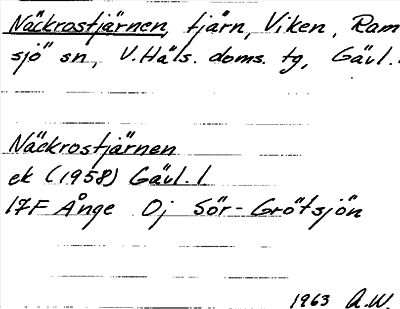 Näckrostjärnen, tjärn, Viken, Ram
sjö sn, V.Häls. doms. tg, Gävl.
Näckrostjärnen
ek (1958) Gävl. l
17F Ånge 0j Sör-Grötsjön
1963 A.W.